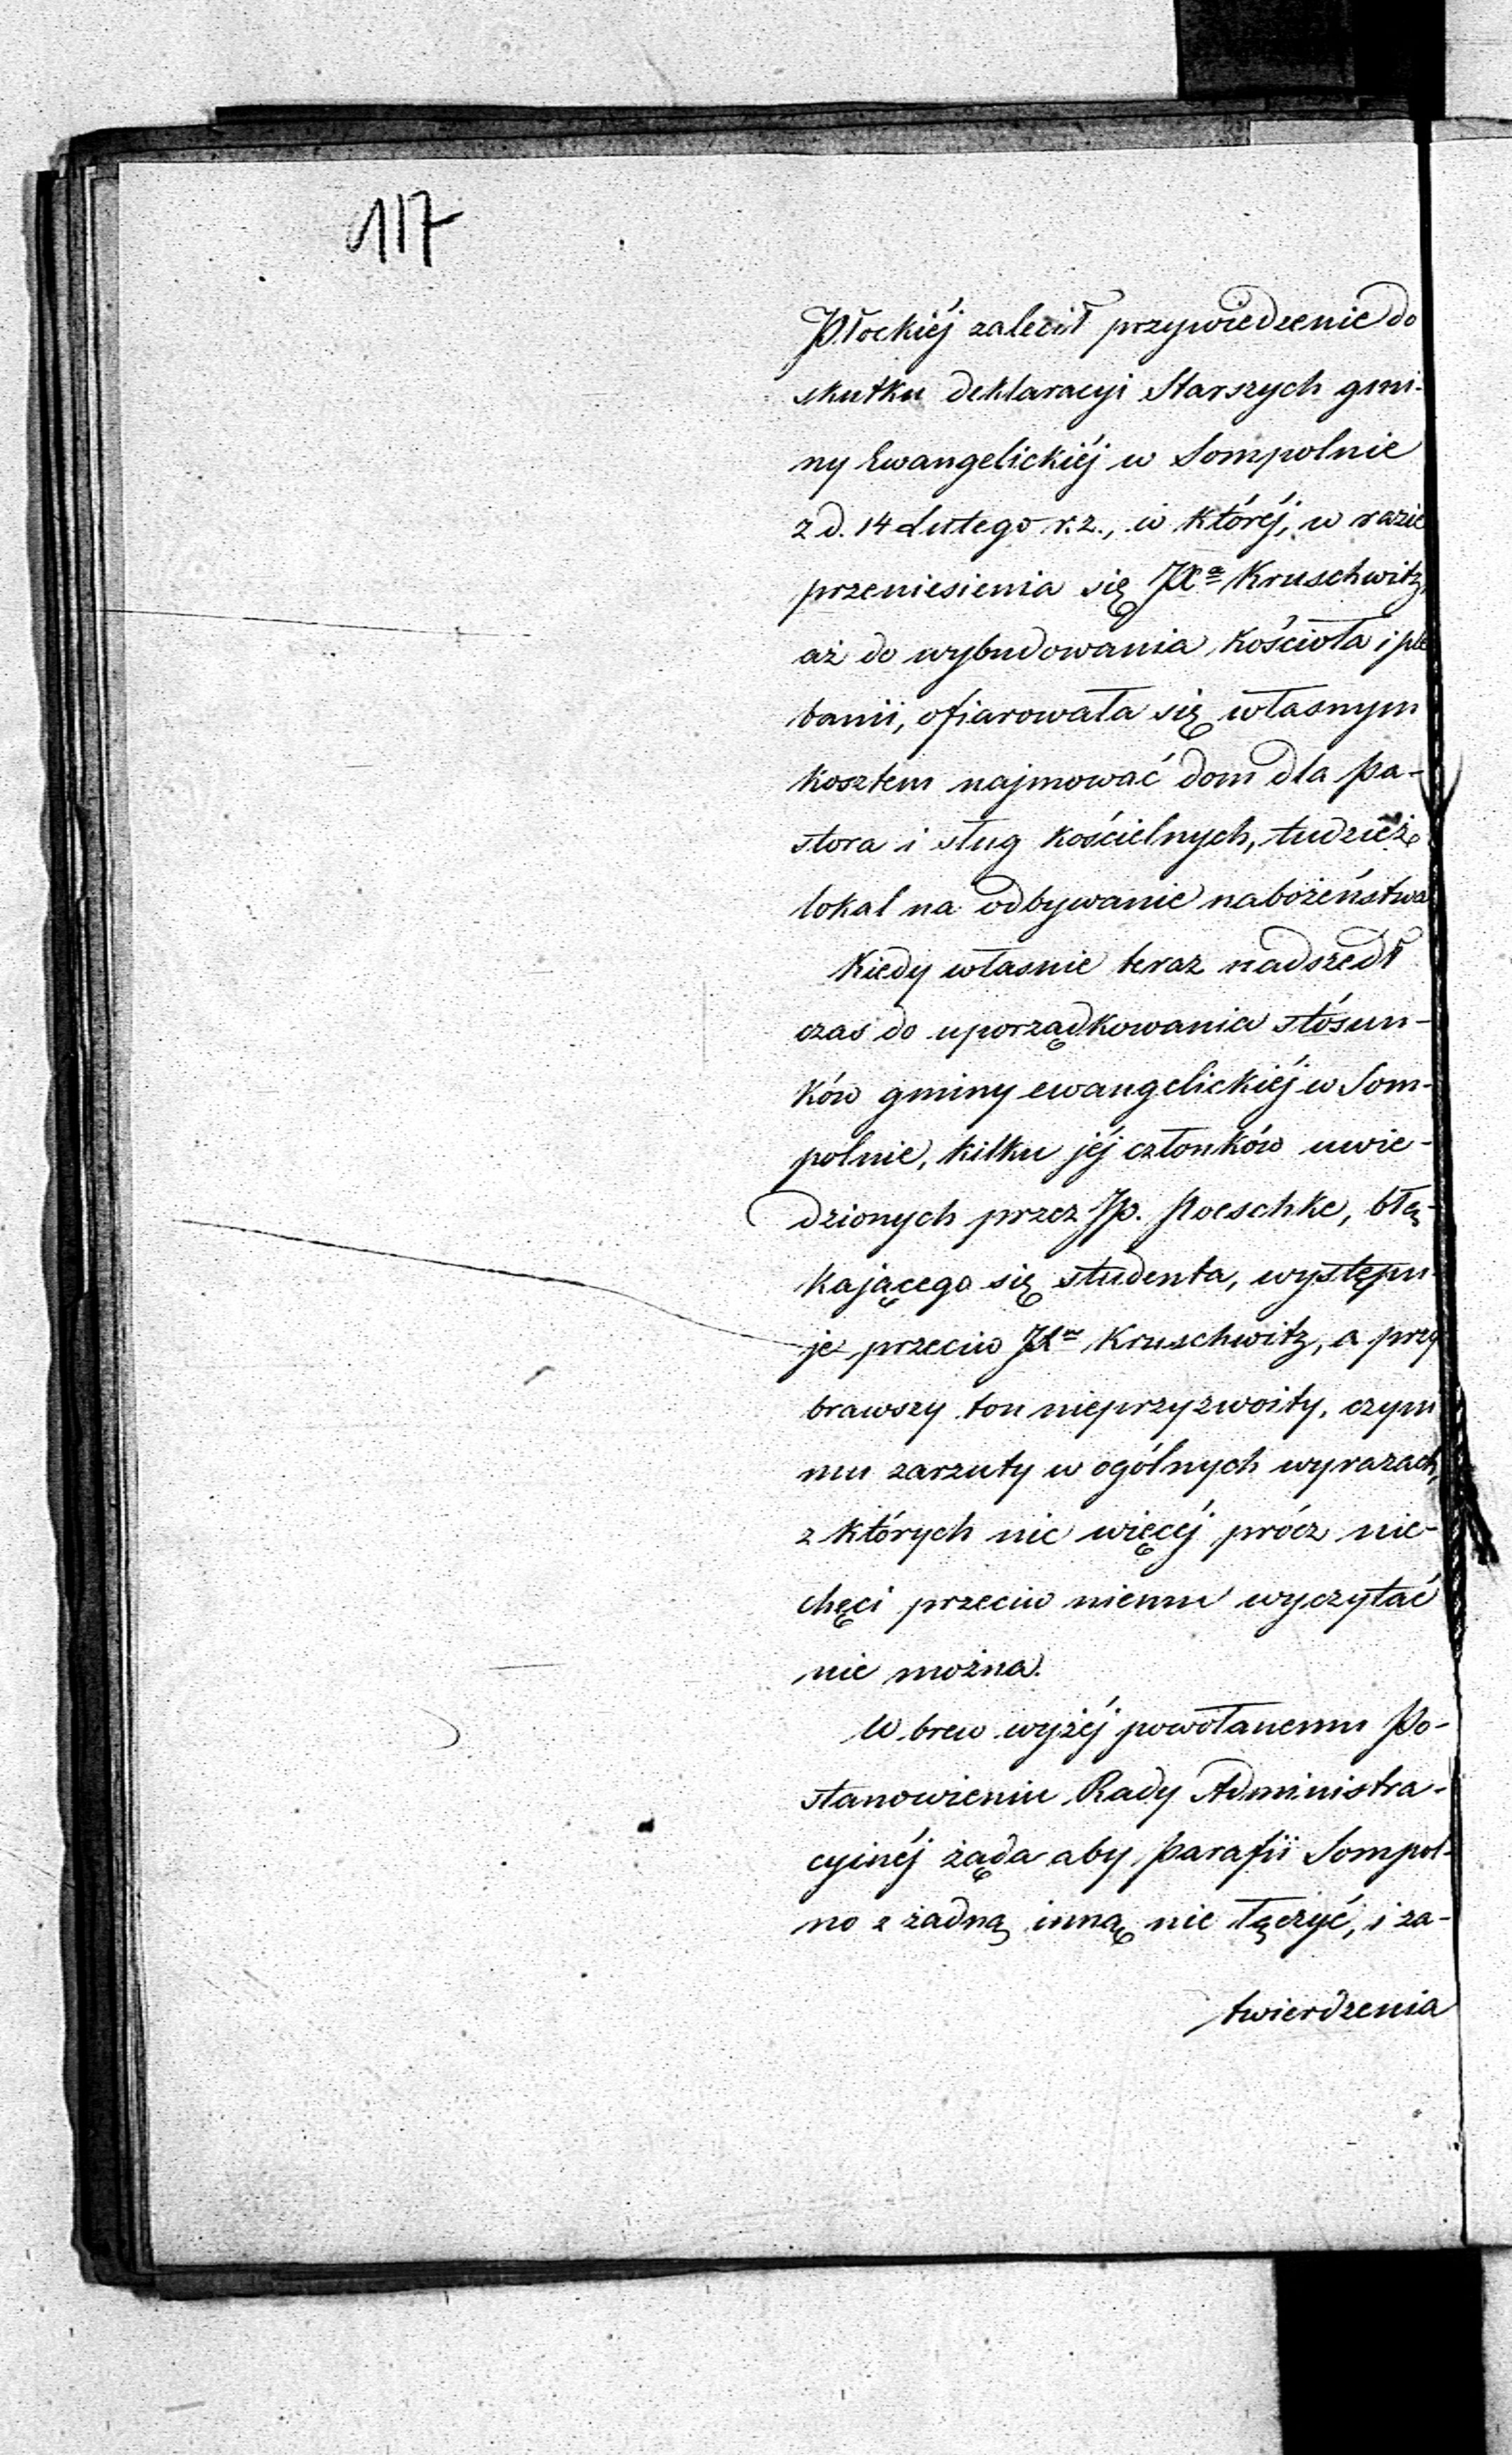 117
Płockiéj zalecił przywiedzenie do
skutku deklaracyi Starszych gmi-
ny Ewangelickiéj w Sompolnie
z d. 14 Lutego r. z., w któréj, w razie
przeniesienia się JXa Kruschwitz,
aż do wybudowania kościoła i ple
banii, ofiarowała się własnym
kosztem najmować dom dla Pa-
stora i sług kościelnych, tudzież
lokal na odbywanie nabożeństwa
Kiedy własnie teraz nadszedł
czas do uporządkowania stósun-
ków gminy ewangelickiéj w Som-
polnie, kilku jéj członków uwie-
dzionych przez JP. Poeschke, błą-
kającego się studenta, występu-
je przeciw JX Kruschwitz, a przy
brawszy ton nieprzyzwoity, czyni
mu zarzuty w ogólnych wyrazach,
z których nic więcéj prócz nie-
chęci przeciw niemu wyczytać
nie można.
W brew wyżéj powołanemu Po-
stanowieniu Rady Administra-
cyinéj żąda aby Parafii Sompol-
no z żadną inną nie łączyć, i za-
twierdzenia